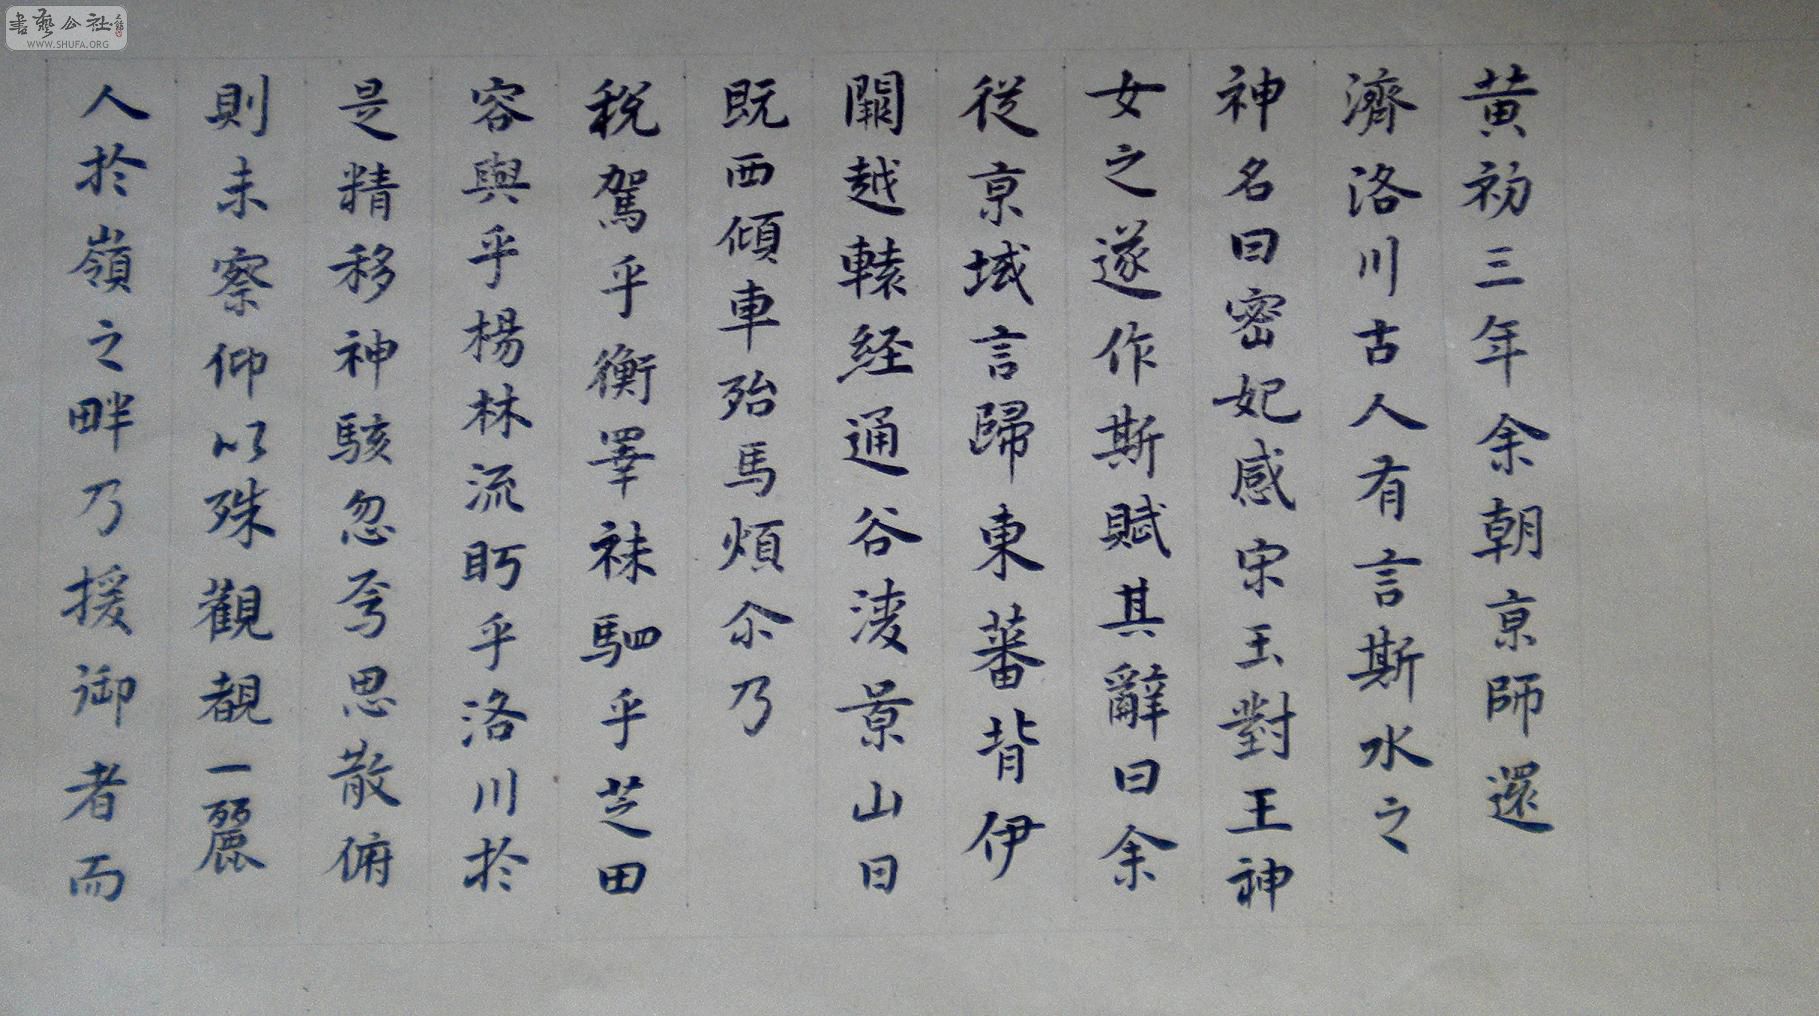 黄初三年余朝亰師還
濟洛川古人有言斯水之
神名曰密妃感宋玉對王神
女之遂作斯賦其辭曰余
従亰域言歸東蕃背伊
闕越轅経通谷淩景山日
既西傾車殆馬煩尒乃
税駕乎衡睪袜駟乎芝田
容與乎楊林流眄乎洛川於
是精移神駭忽焉思散俯
則未察仰以殊觀覩一麗
人於嶺之畔乃援御者而
書藝公社
WWW.SHUFA.ORG